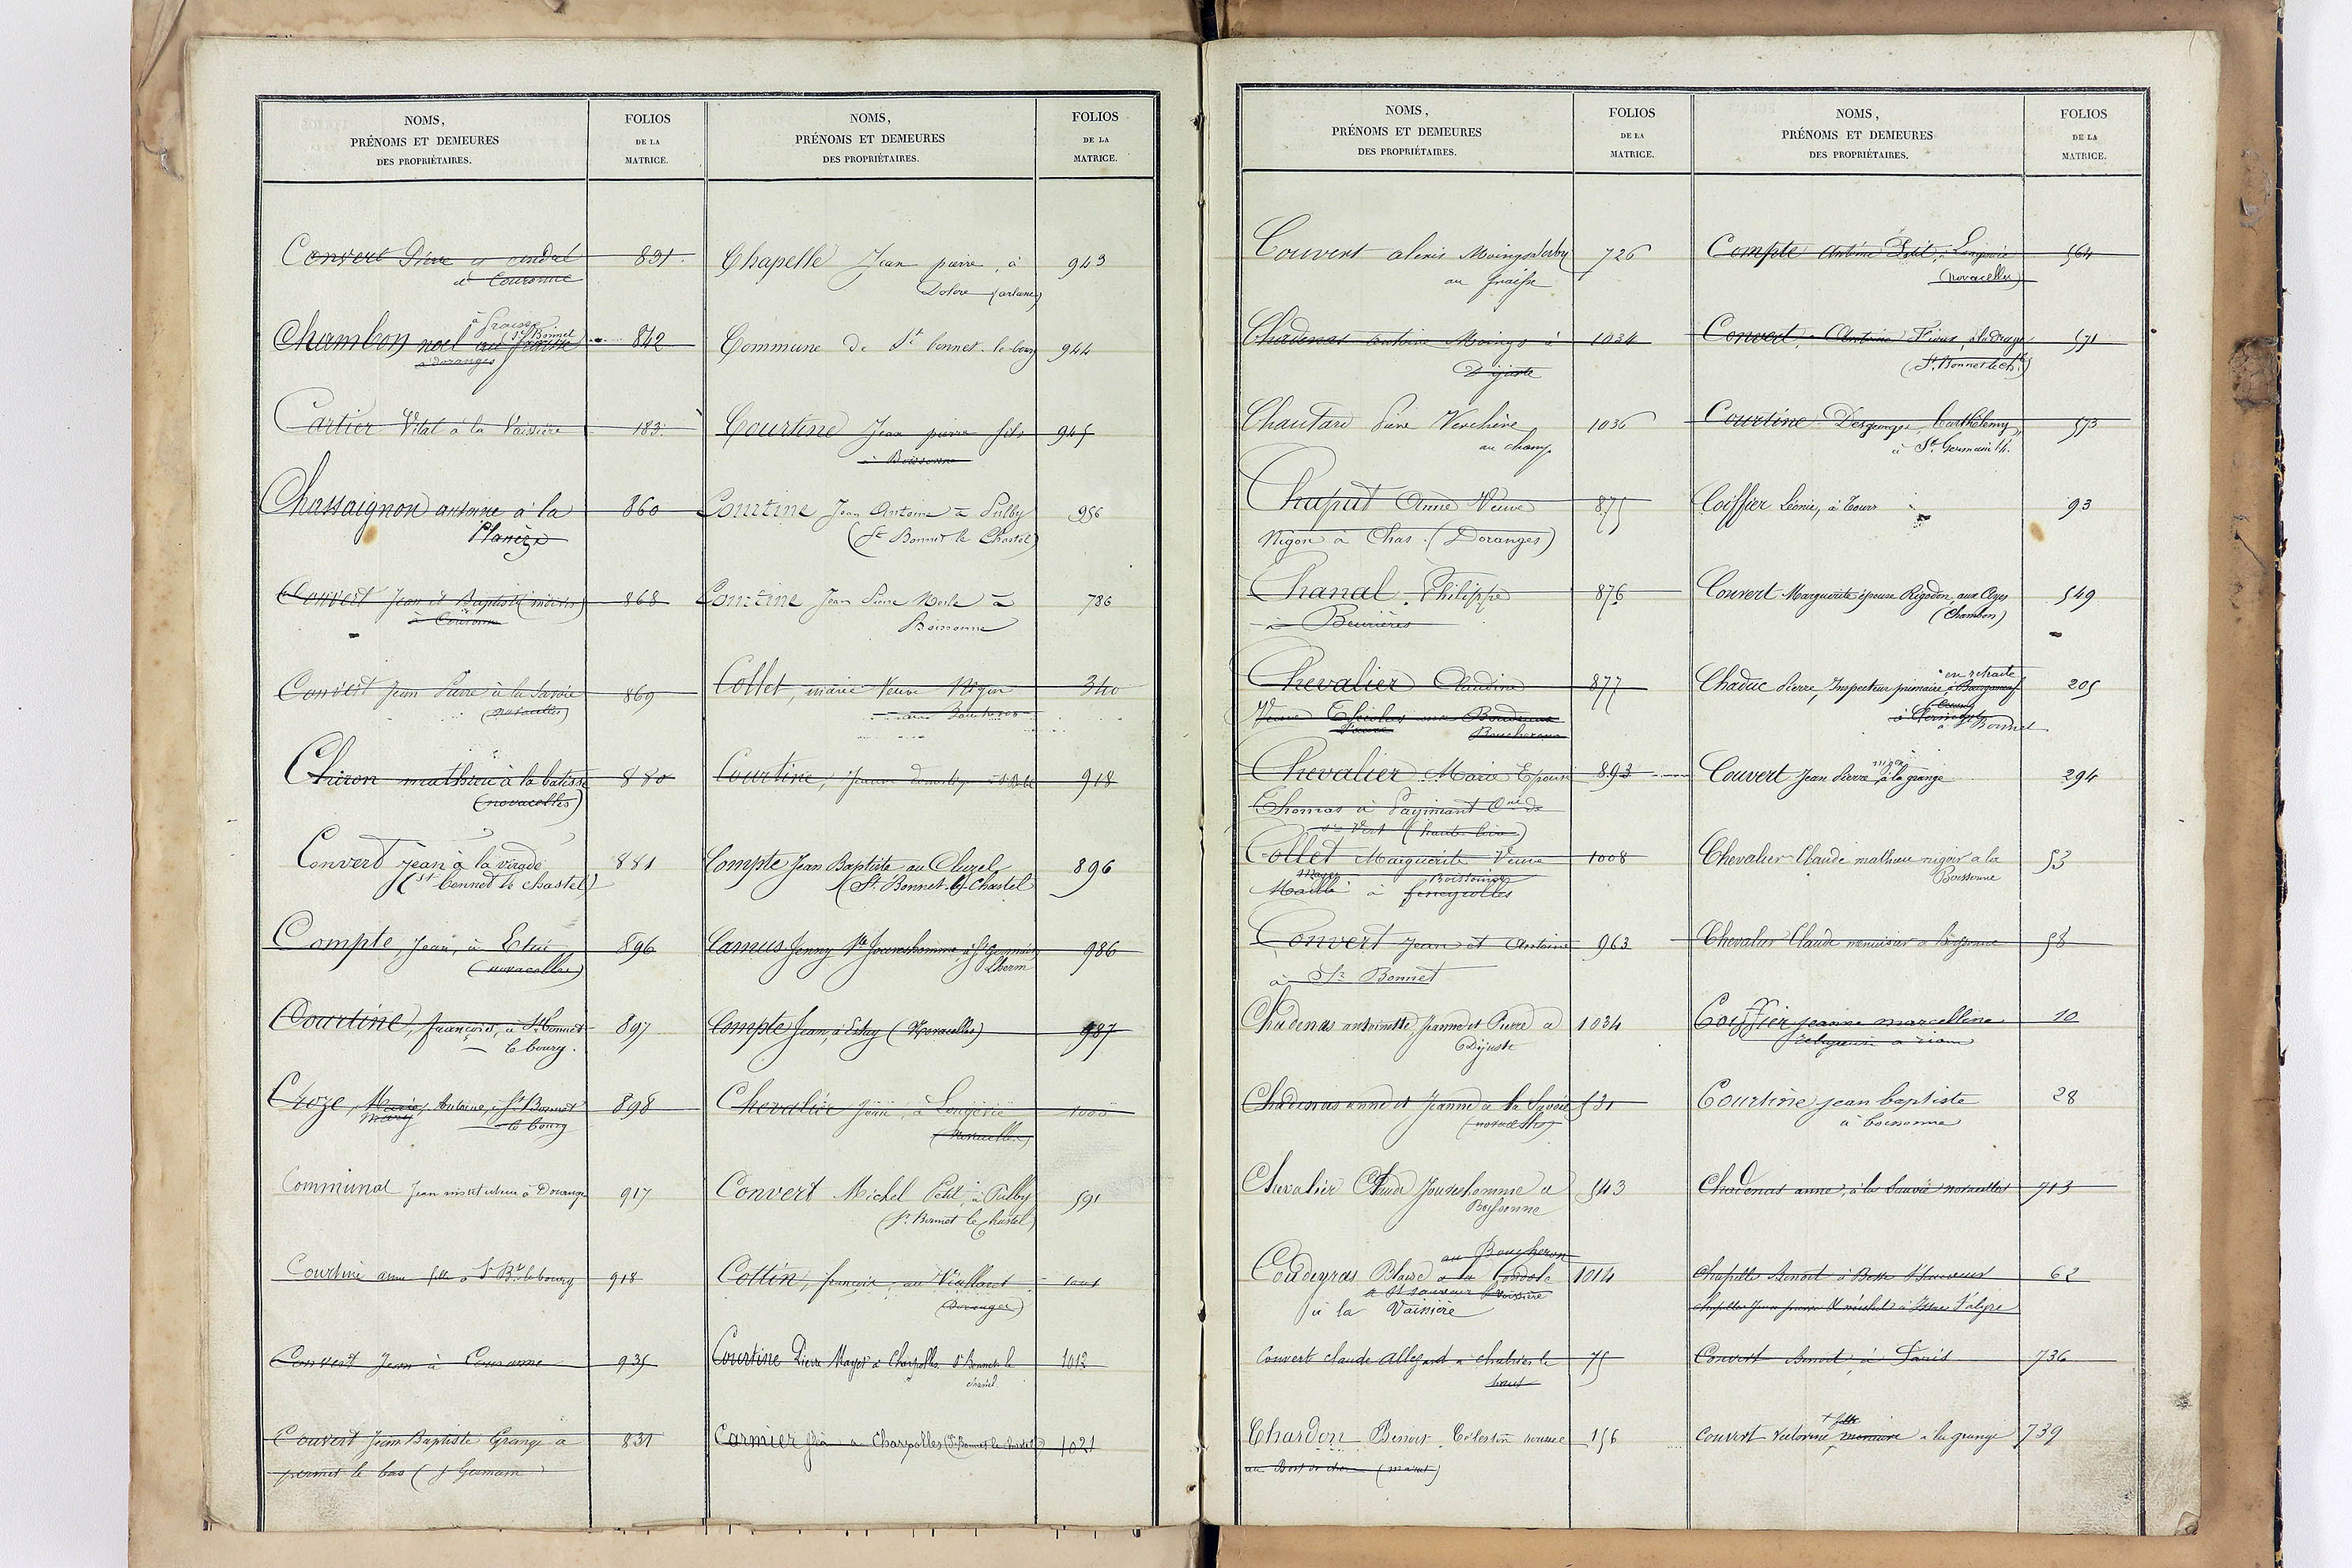 NOMS,
PRÉNOMS ET DEMEURES
DES PROPRIÉTAIRES.
FOLIOS
DE LA
MATRICE.
Convert Pierre cadet 831
à Couronne
à Fraisse
(St Bonnet
Chambon noel au fraisse 842
à doranges
Cartier Vital à la Vaissière 183
Chassaignon antoine à la 860
Planèze
Convert Jean et Baptiste (indivis) 868
à Couronne
Convert Jean Pierre à la Savoie 869
(novacelles)
Chiron mathieu à la batisse 880
(novacelles)
Convert Jean à la virade 881
(st bonnet le chastel)
Compte, Jean, à Etui 896
(novacelles)
Courtine, françois, à St Bonnet 897
le bourg.
Croze, Marie, Antoine, à St Bonnet 898
Mary le bourg
Communal Jean instituteur à Doranges 917
Courtine anne fille à St Bt le bourg 918
Convert Jean à Couronne 935
Convert Jean Baptiste Grange à 831
permet le bas (St Germain)
NOMS,
PRÉNOMS ET DEMEURES
DES PROPRIÉTAIRES.
FOLIOS
DE LA
MATRICE.
Chapelle Jean pierre, à 943
Dolore (arlanc)
Commune de St bonnet-le-bourg 944
Courtine Jean pierre fils 945
à Boissonne
Courtine Jean Antoine à Pulby 956
(St Bonnet le Chastel)
Courtine Jean Pierre Merle à 786
Boissonne
Collet, marie Veuve Nigon 340
Courtine, Jeanne 918
Compte Jean Baptiste au Cluzel 896
(St. Bonnet-le-Chastel
Camus Jenny Ve Jouveshomme à St Germain 986
Lherm
Compte Jean, à Estuy (Novacelles) 987
Chevalier Jean, à Longerie 1000
(Novacelles)
Convert Michel Petit à Pulby 591
(St. Bonnet le chastel)
Cottin, françois, au Viallaret 1001
(Doranges)
Courtine Pierre Mayet à Charpolles St Bonnet le 1012
chastel.
Carmier à Charpolles (St Bonnet le chastel) 1021
NOMS,
PRÉNOMS ET DEMEURES
DES PROPRIÉTAIRES.
FOLIOS
DE LA
MATRICE.
Couvert alexis 726
au fraisse
Chadenas antoine Moings à 1034
Dijuste
Chautard Pierre Verchère 1036
au champ
Chaput Anne Veuve 875
Nigon à Chas (Doranges)
Chanal Philippe 876
à Beurières
Chevalier Claudine 877
Boucherons
Chevalier Marie Epouse 893
Thomas à
St Vert (haute loire)
Collet Marguerite Veuve 1008
Mayet Boissonne
Maille à fougerolles
Convert Jean et Antoine 963
à St Bonnet
Chadenas antoinette, Jeanne et Pierre à 1034
Dijuste
Chadenas anne et Jeanne à la Savoie 531
(novacelles)
Chevalier Claude Jouveshomme à 543
Boissonne
au Boucheron
Coudeyras Blaise à la 1014
à St sauveur la Vaissière
à la Vaissière
Convert claude Allegard à chabrier le 75
haut
Chardon Benoit Célestin 156
NOMS,
PRÉNOMS ET DEMEURES
DES PROPRIÉTAIRES.
FOLIOS
DE LA
MATRICE.
Compte Antoine Petit, Longerie 564
(novacelles)
Convert, Antoine Pierre 571
(St. Bonnet le ch.)
Courtine Desgeorges, barthélemy, 573
à St Germain l'h.
Coiffier Léonie, à Tours 93
Couvert Marguerite épouse Rigodon, aux Ceys 549
(Chambon)
en retraite
Chaduc Pierre, Inspecteur primaire à 205
à Clermont
à St Bonnet
nigon
Couvert Jean Pierre à la grange 294
Chevalier Claude mathieu nigon à la 53
Boissonne
Chevalier Claude menuisier à Boissonne 58
Coiffier jeanne marcelline 10
religieuse à riom
Courtine jean baptiste 28
à boissonne
Chadenas anne, à la Sauvie novacelles 713
Chapelle Benoit à St Sauveur 62
Convert Benoit à Paris 736
fille
Couvert victorine à la grange 739